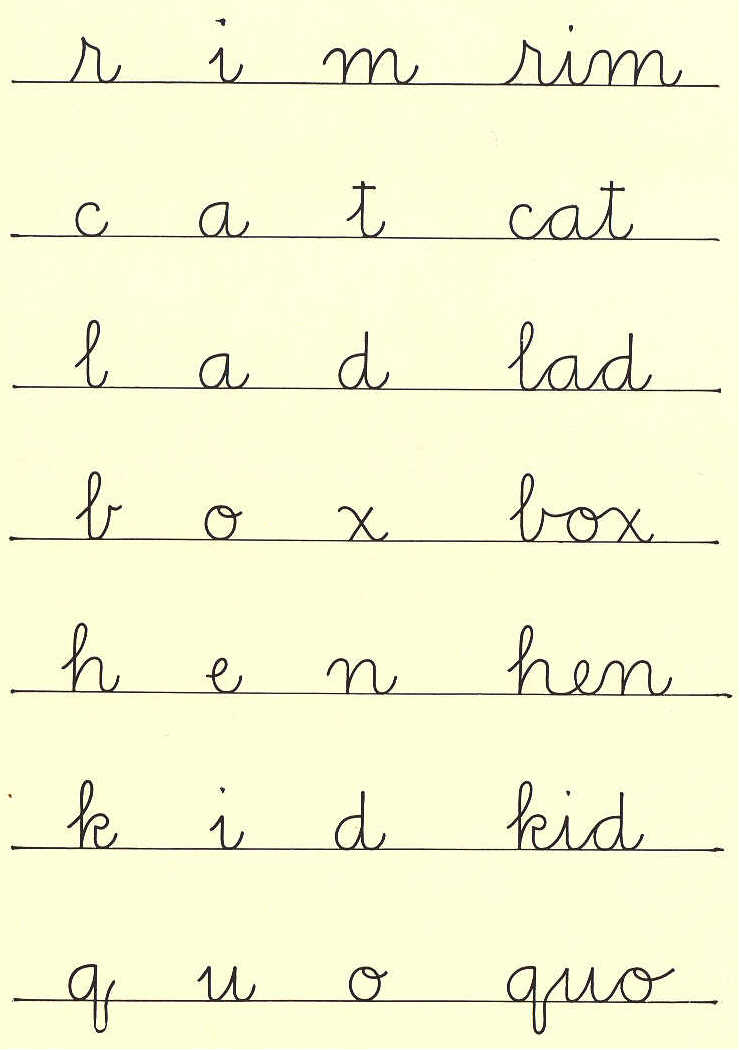 r i m rim
c a t cat
l a d lad
b o x box
h e n hen
k i d kid
q u o quo